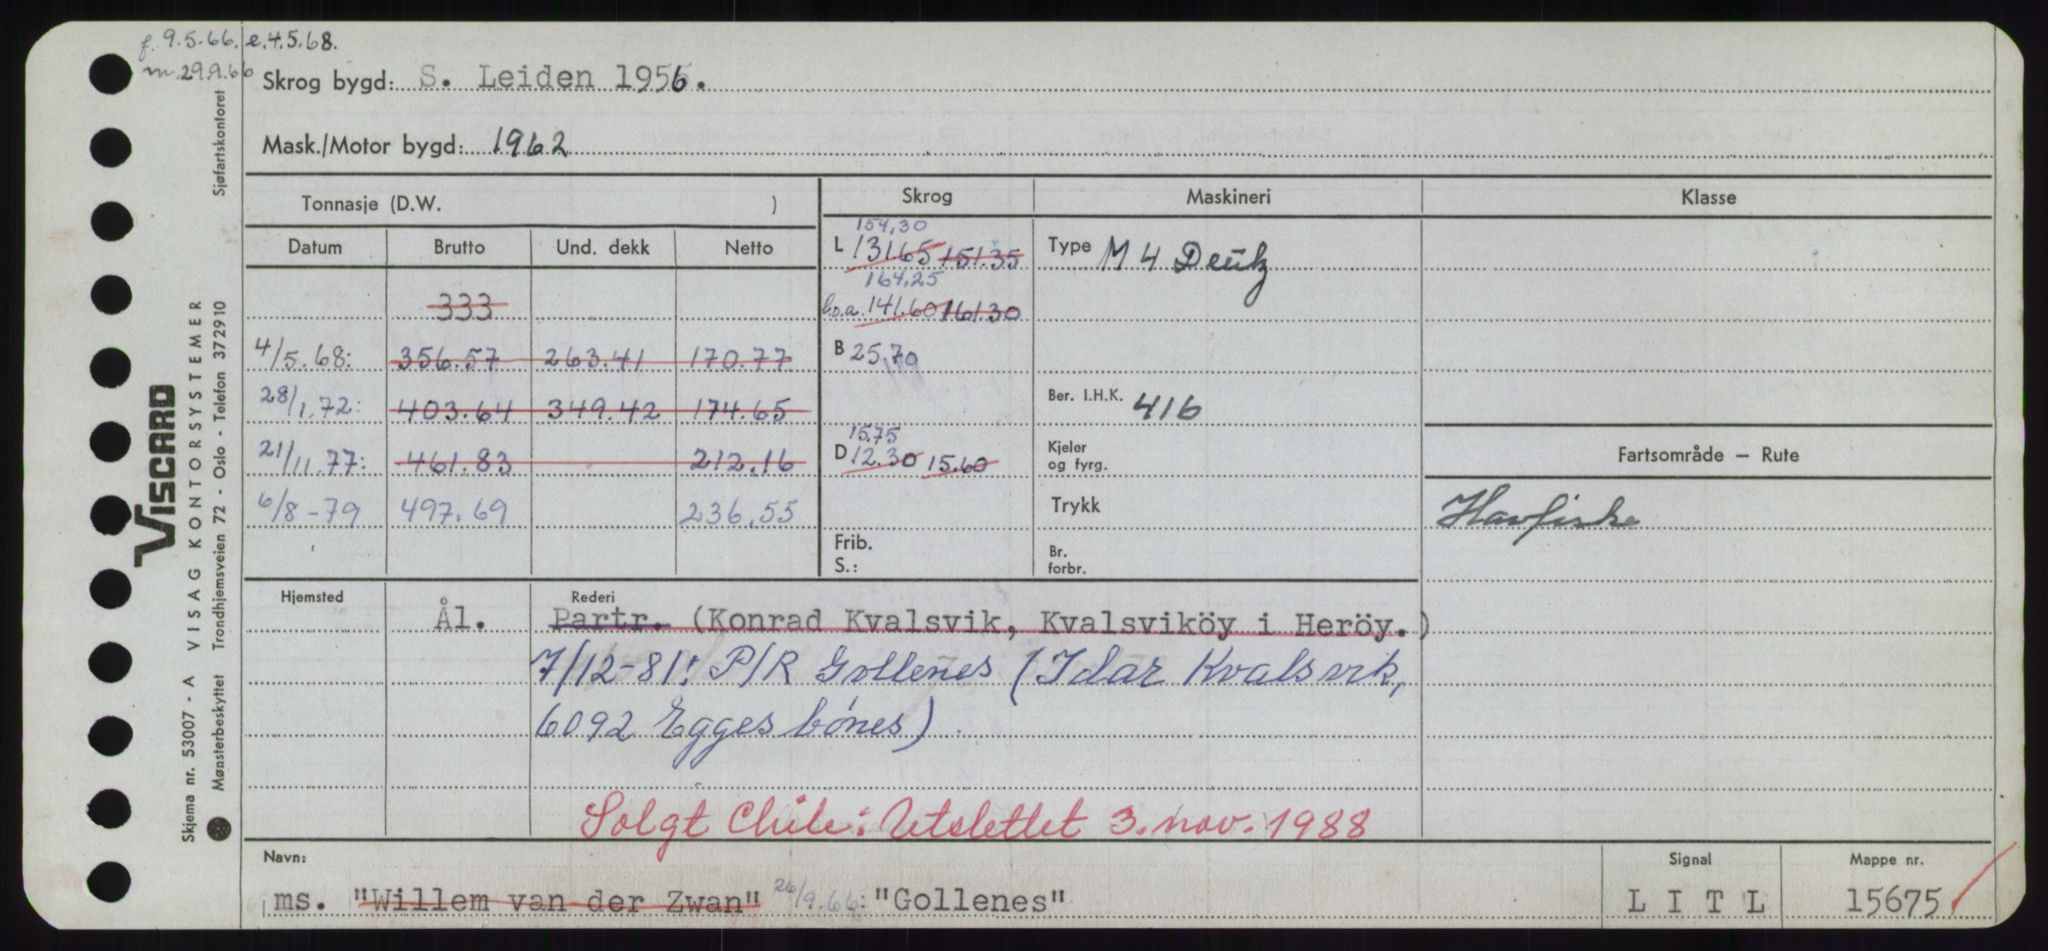 f. 9.5.66. e.4.5.68.
m.29.9.66
Skrog bygd: S. Leiden 1956.
Mask./Motor bygd: 1962
Tonnasje (D.W. )
Skrog
Maskineri
Klasse
Datum Brutto Und. dekk Netto
333
4/5.68: 356.57 263.41 170.77
28/1.72: 403.64 349.42 174.65
21/11.77: 461.83 212.16
6/8-79 497.69 236,55
154,30
L 131.65 151.35
164,25
l.o.a. 141.60 161.30
B 25.70
15.75
D 12.30 15.60
Frib.
S.:
Type M 4 Deutz
Ber. I.H.K. 416
Kjeler
og fyrg.
Trykk
Br.
forbr.
Fartsområde – Rute
Havfiske
Hjemsted
Rederi
Ål. Partr. (Konrad Kvalsvik, Kvalsviköy i Heröy.)
7/12-81: P/R Gollenes (Idar Kvalsvik,
6092 Eggesbønes)
Solgt Chile: Utslettet 3. nov. 1988
Navn:
Signal
Mappe nr.
ms. "Willem van der Zwan" 26/9.66: "Gollenes"
L I T L
15675
Skjema nr. 53007 - A VISAG KONTORSYSTEMER
VISCARD
Mønsterbeskyttet Trondhjemsveien 72 - Oslo - Telefon 372910 Sjøfartskontoret